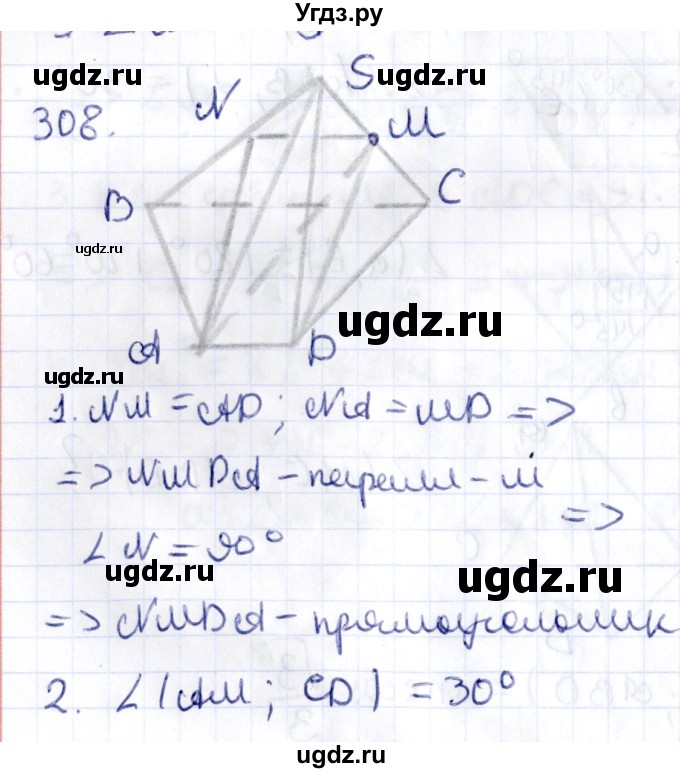 Угдз.ру
ugdz.ru
ugdz.ru
308.
N
S
M
B
C
ugdz.ru
ugdz.ru
A
D
ugdz.ru
1. NM = AD; NA = MD =>
=> NMDA – паралл – м
=>
∠N = 90°
ugdz.ru
ugdz.ru
=> NMDA – прямоугольник
2. ∠(AM; CD) = 30°
ugdz.ru
ugdz.ru